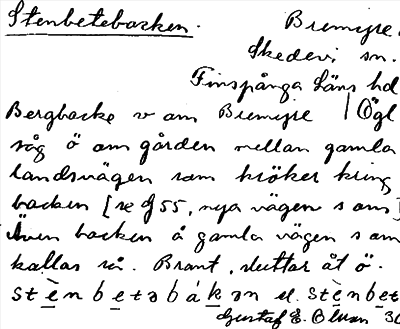 Stenbetebacken.
Bremyre.
Skedevi sn.
Finspånga läns hd
Bergbacke v om Bremyre | Ögl
såg ö om gården mellan gamla
landsvägen som kröker kring
backen [se G55, nya vägen s om]
Även backen å gamla vägen s om
kallas så. Brant, sluttar åt ö.
stènbetəbákən el. stènbet
Gustaf E. Olson 30